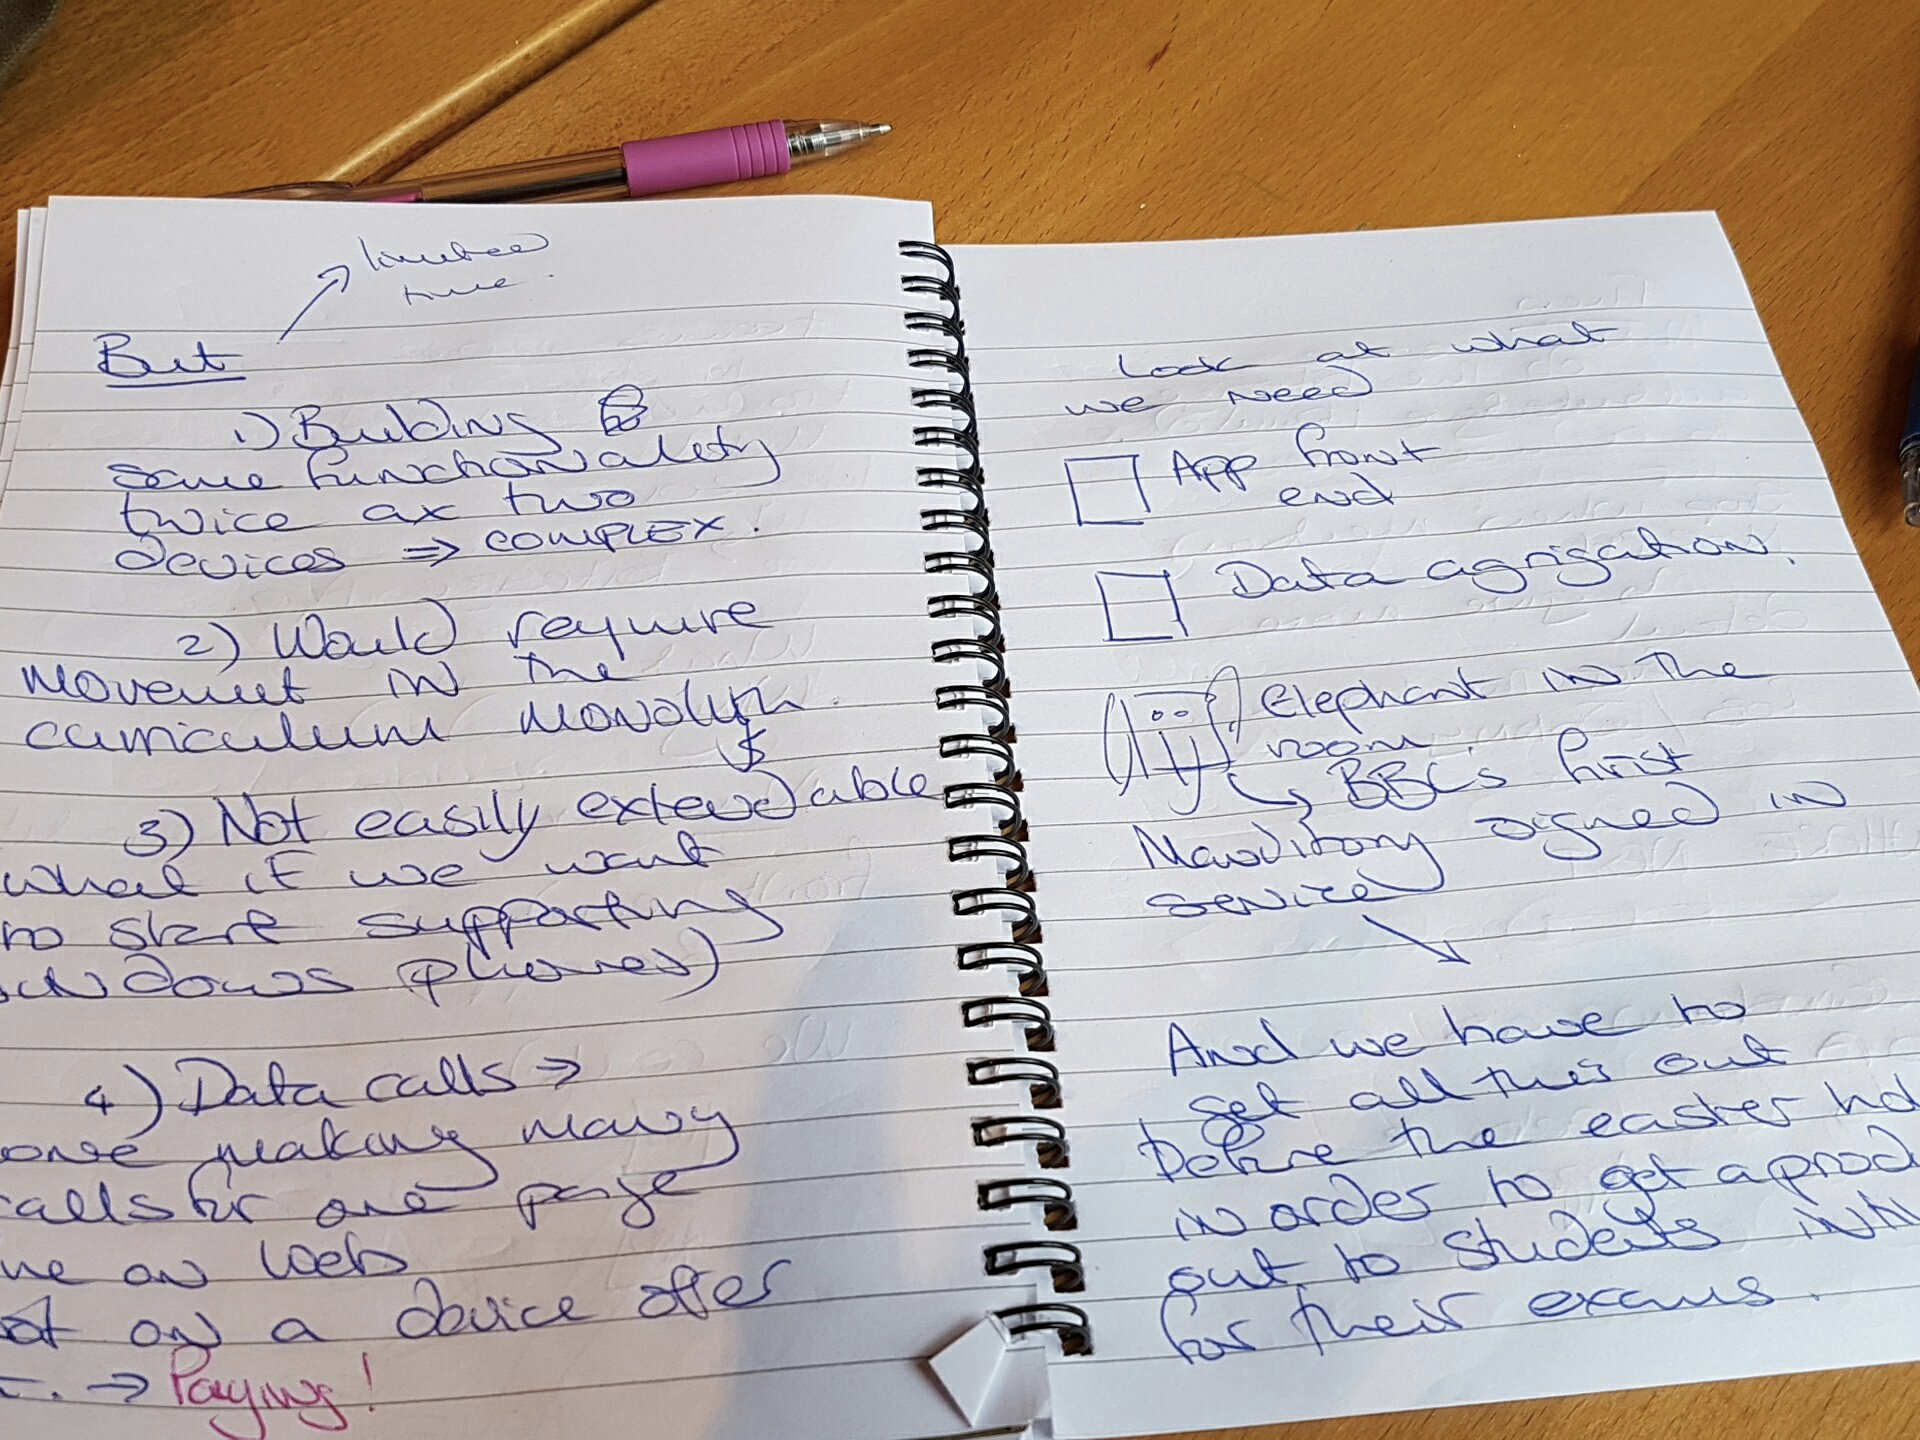 limited
time.
But
1) Building
same functionality
twice ax two
devices ⇒ COMPLEX.
2) Would require
movement in the
curriculum monolith.
$
3) Not easily extendable
what if we want
to start supporting
windows phones)
4) Data calls →
making many
calls for one page
on web
on a device often
→ Paying!
Look at what
we need
App front
end
Data agrigation.
Elephant in the
room.
↳ BBC's first
Manditory signed in
service
And we have to
get all this out
Before the easter
in order to get a
out to students
for their exams.